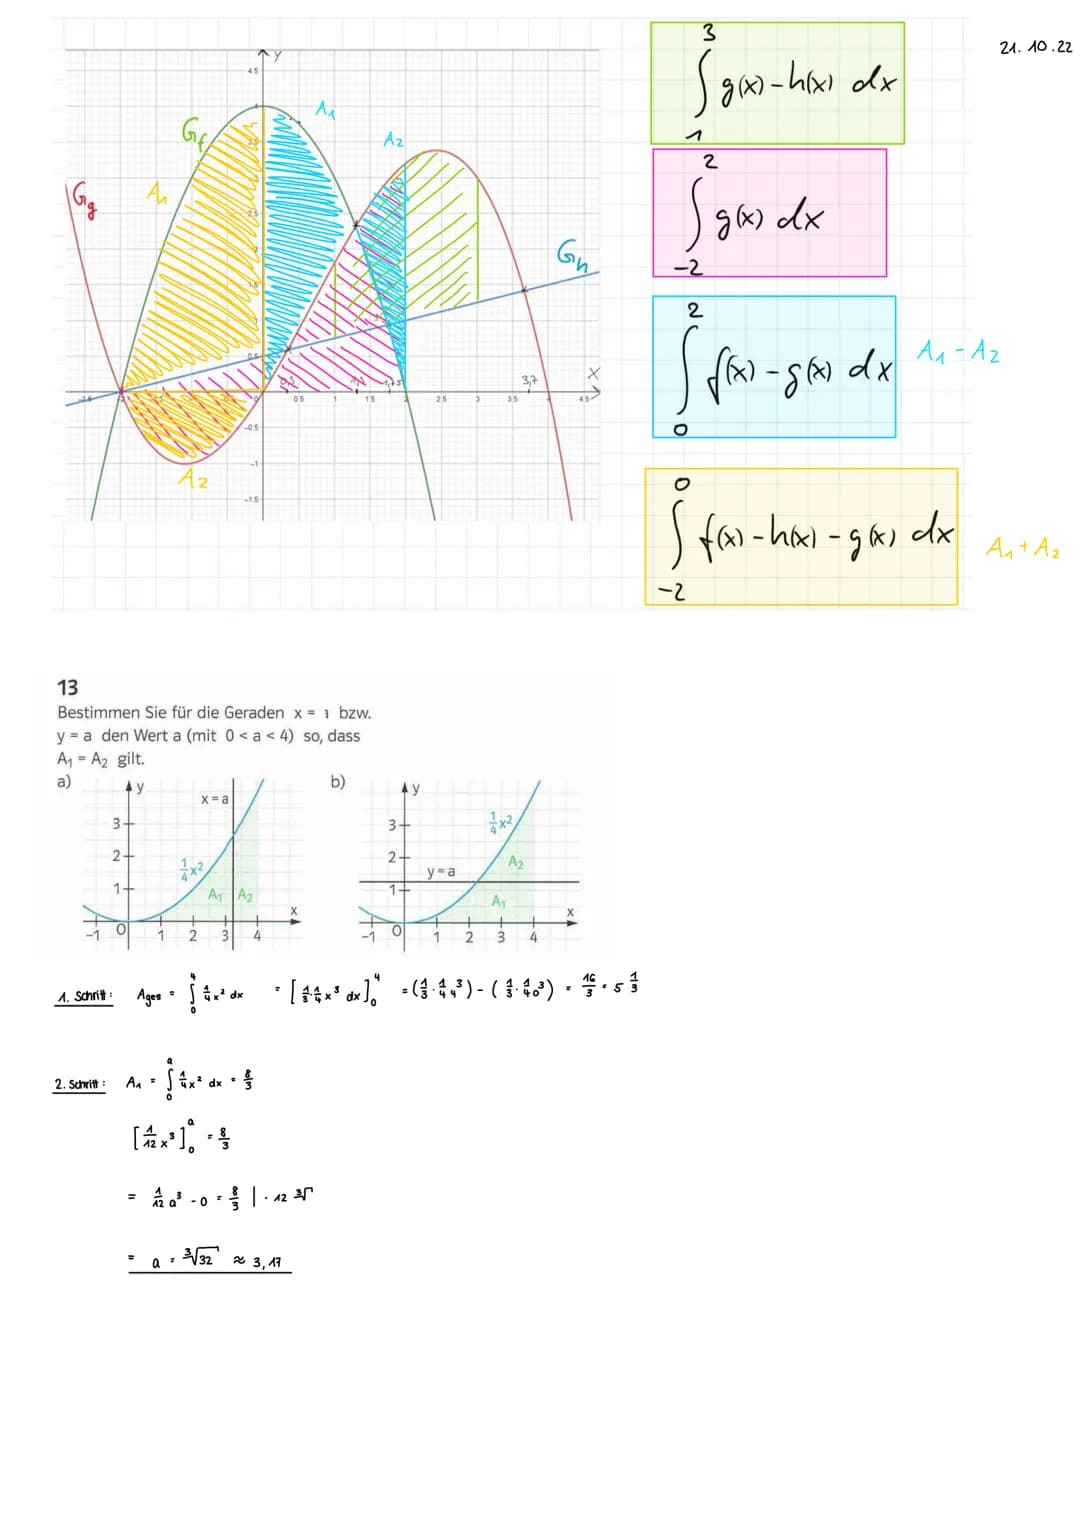 21. 10. 22
y
4.5
G_f
A_1
A_1
A_2
G_g
G_h
A_2
x
3,7
-0.5
-1
-1.5
0.5
1
1.5
2.5
3
3.5
4.5
∫_1^3 g(x) - h(x) dx
∫_{-2}^2 g(x) dx
∫_0^2 f(x) - g(x) dx A_1 - A_2
∫_{-2}^0 f(x) - h(x) - g(x) dx A_1 + A_2
13
Bestimmen Sie für die Geraden x = 1 bzw.
y = a den Wert a (mit 0 < a < 4) so, dass
A₁ = A₂ gilt.
a)
y
x = a
3
2
1/4 x²
1
A₁ A₂
x
-1 0 1 2 3 4
b)
y
3
1/4 x²
2
y = a
A₂
1
A₁
x
-1 0 1 2 3 4
1. Schritt: Ages = ∫_0^4 1/4 x² dx = [1/3 · 1/4 x³ dx]_0^4 = (1/3 · 1/4 4³) - (1/3 · 1/4 0³) = 16/3 = 5 1/3
2. Schritt: A_1 = ∫_0^a 1/4 x² dx = 8/3
[1/12 x³]_0^a = 8/3
= 1/12 a³ - 0 = 8/3 | · 12 ³√
= a = ³√32 ≈ 3,17